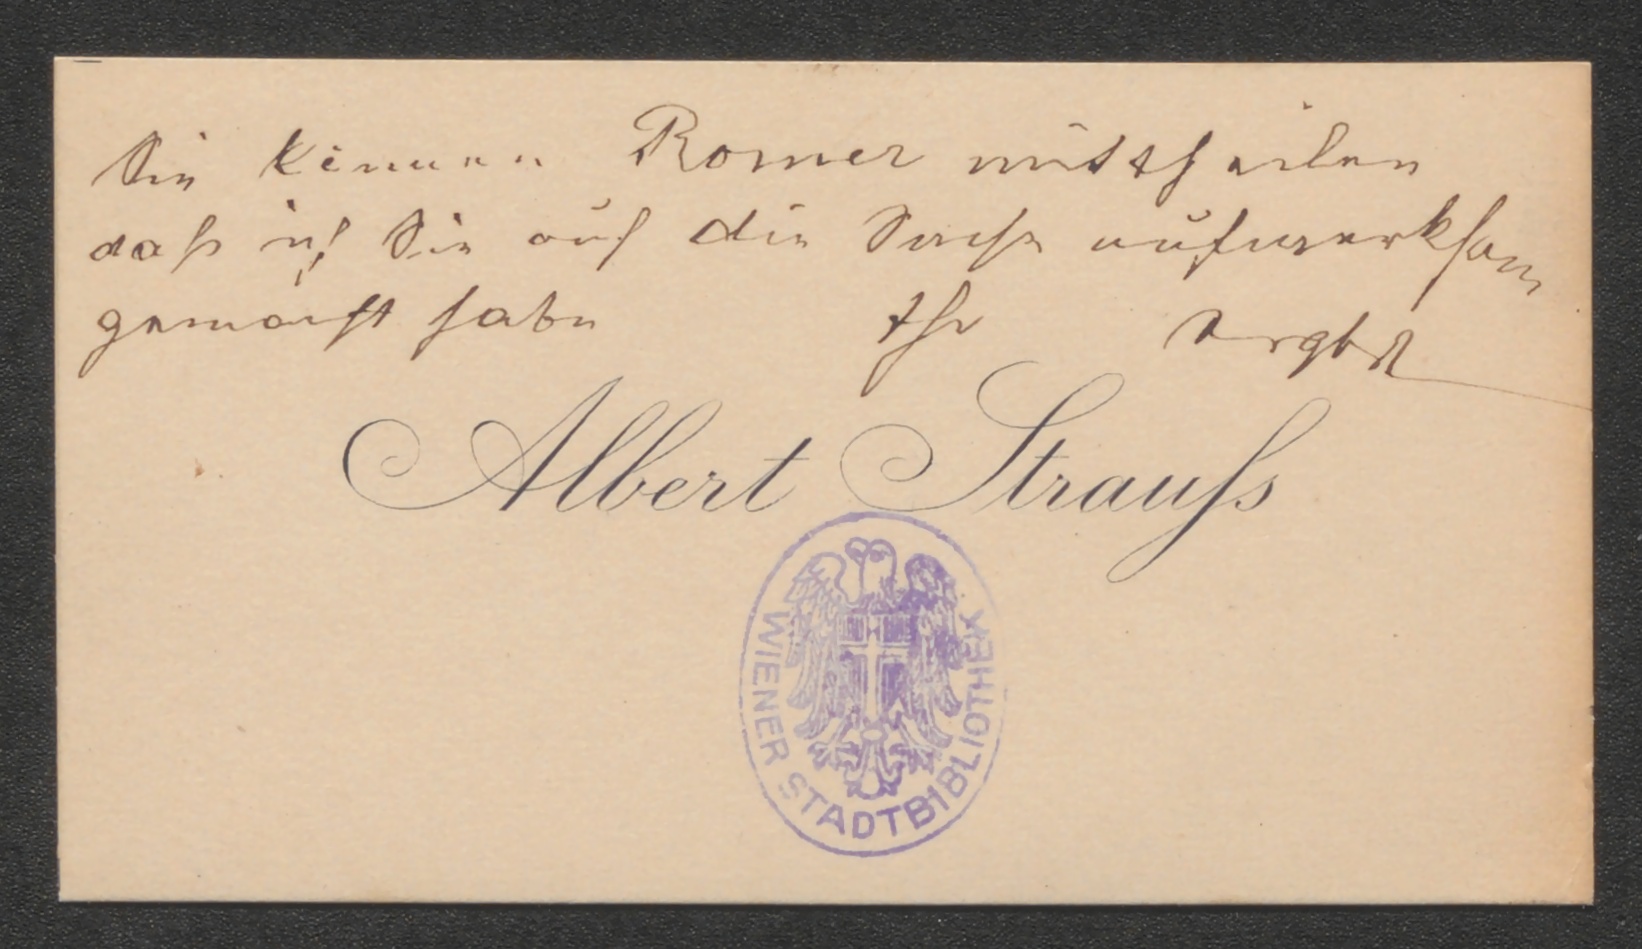 Sie können Romer mittheilen
daß ich Sie auf die Sache aufmerksam
gemacht habe Ihr ergbst
Albert Strauſs
WIENER STADTBIBLIOTHEK